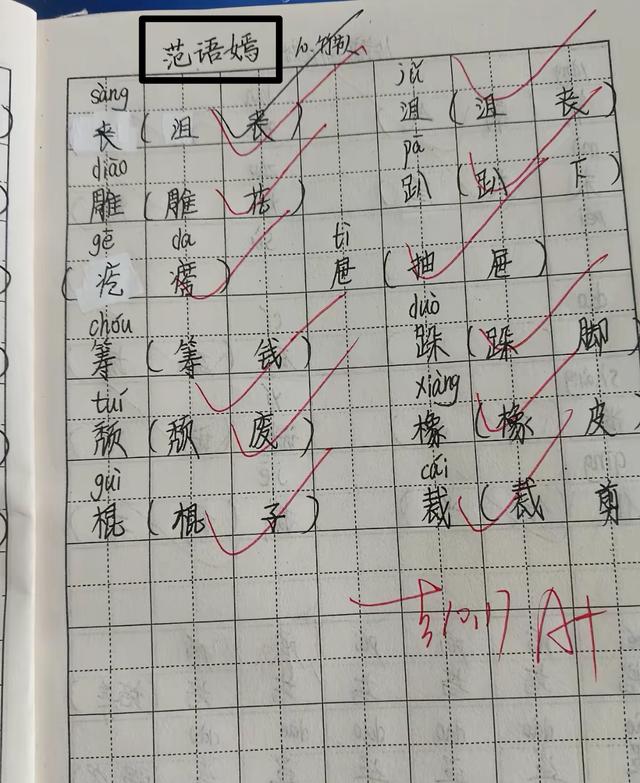 范语嫣 10.竹节人
sàng jǔ
丧(沮丧) 沮(沮丧
diāo pā
雕(雕花) 趴(趴下)
gē da tì
(疙瘩) 屉(抽屉)
chóu duò
筹(筹钱) 跺(跺脚)
tuí xiàng
颓(颓废) 橡(橡皮
gùi cái
棍(棍子) 裁(裁剪
10.17 A+